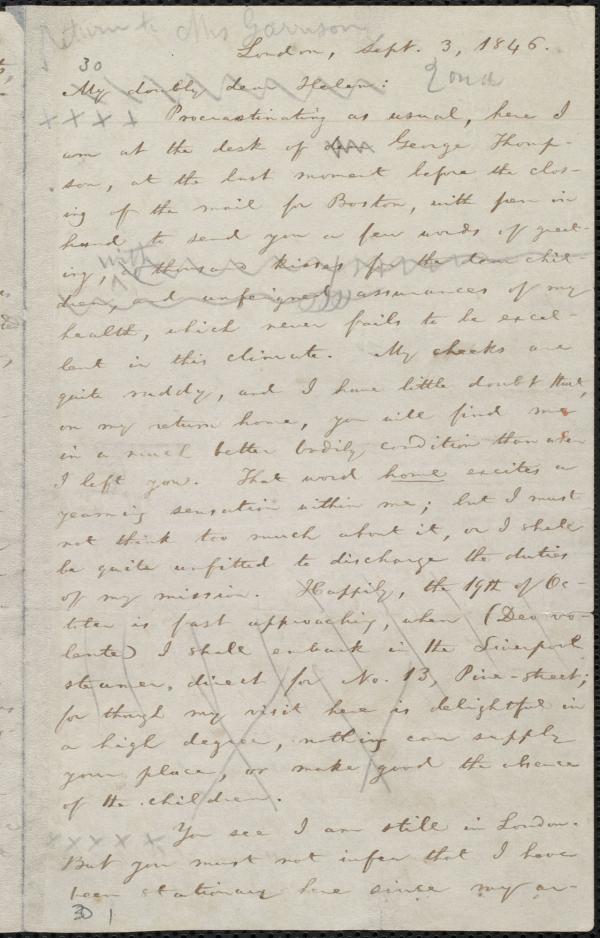 Return to Mrs Garrison
London, Sept. 3, 1846.
30
My doubly dear Helen:
Lond
x x x x Procrastinating as usual, here I
am at the desk of George Thomp-
son, at the last moment before the clos-
ing of the mail for Boston, with pen in
hand, to send you a few words of greet-
with
ing, a thousand kisses for the dear chil-
dren, and unfeigned assurances of my
health, which never fails to be excel-
lent in this climate. My cheeks are
quite ruddy, and I have little doubt that,
on my return home, you will find me
in a much better bodily condition than when
I left you. That word home excites a
yearning sensation within me; but I must
not think too much about it, or I shall
be quite unfitted to discharge the duties
of my mission. Happily, the 19th of Oc-
tober is fast approaching, when (Deo vo-
lante) I shall embark in the Liverpool
steamer, direct for No. 13, Pine-street;
for though my visit here is delightful in
a high degree, nothing can supply
your place, or make good the absence
of the children.
x x x x x You see I am still in London.
But you must not infer that I have
been stationary here since my ar-
30 1